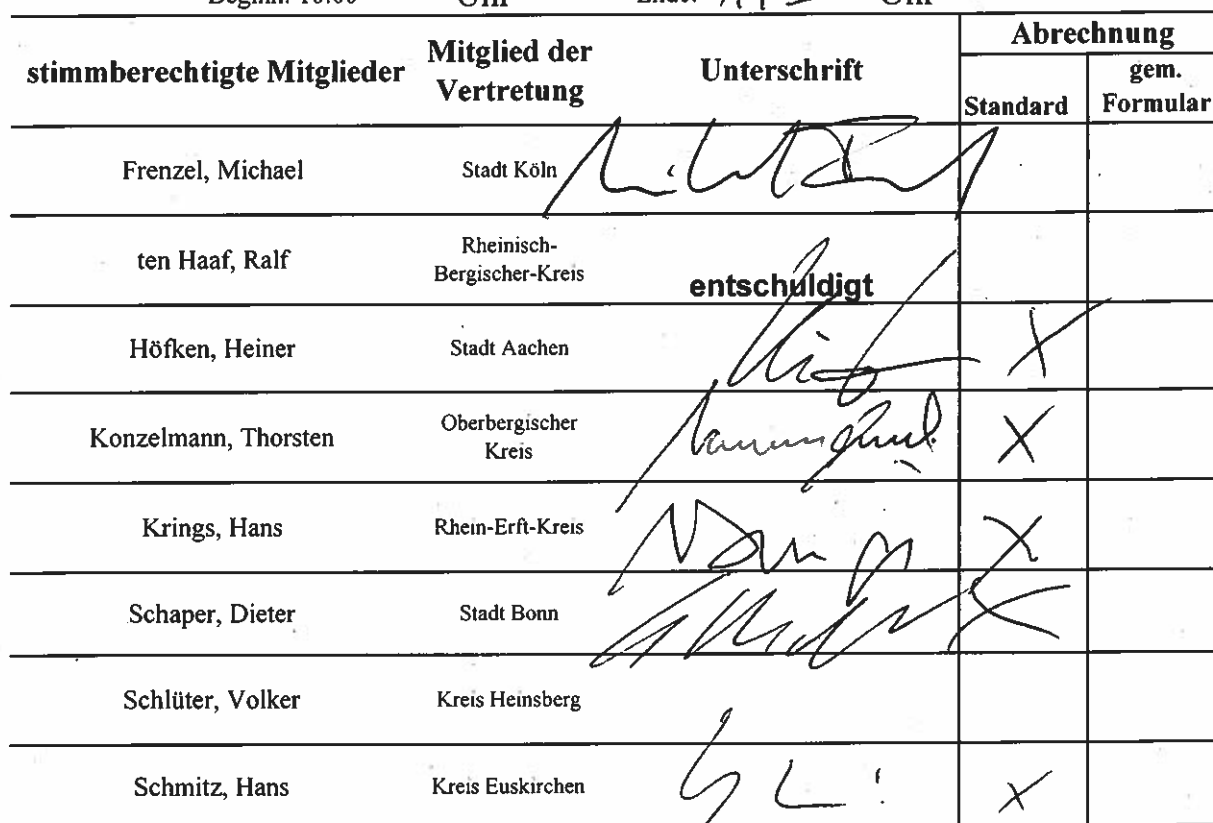 Beginn: 10.00 Uhr Ende: Uhr
stimmberechtigte Mitglieder Mitglied der Vertretung Unterschrift Abrechnung
Standard gem. Formular
Frenzel, Michael Stadt Köln
ten Haaf, Ralf Rheinisch-
Bergischer-Kreis entschuldigt
Höfken, Heiner Stadt Aachen X
Konzelmann, Thorsten Oberbergischer
Kreis X
Krings, Hans Rhein-Erft-Kreis X
Schaper, Dieter Stadt Bonn X
Schlüter, Volker Kreis Heinsberg
Schmitz, Hans Kreis Euskirchen X